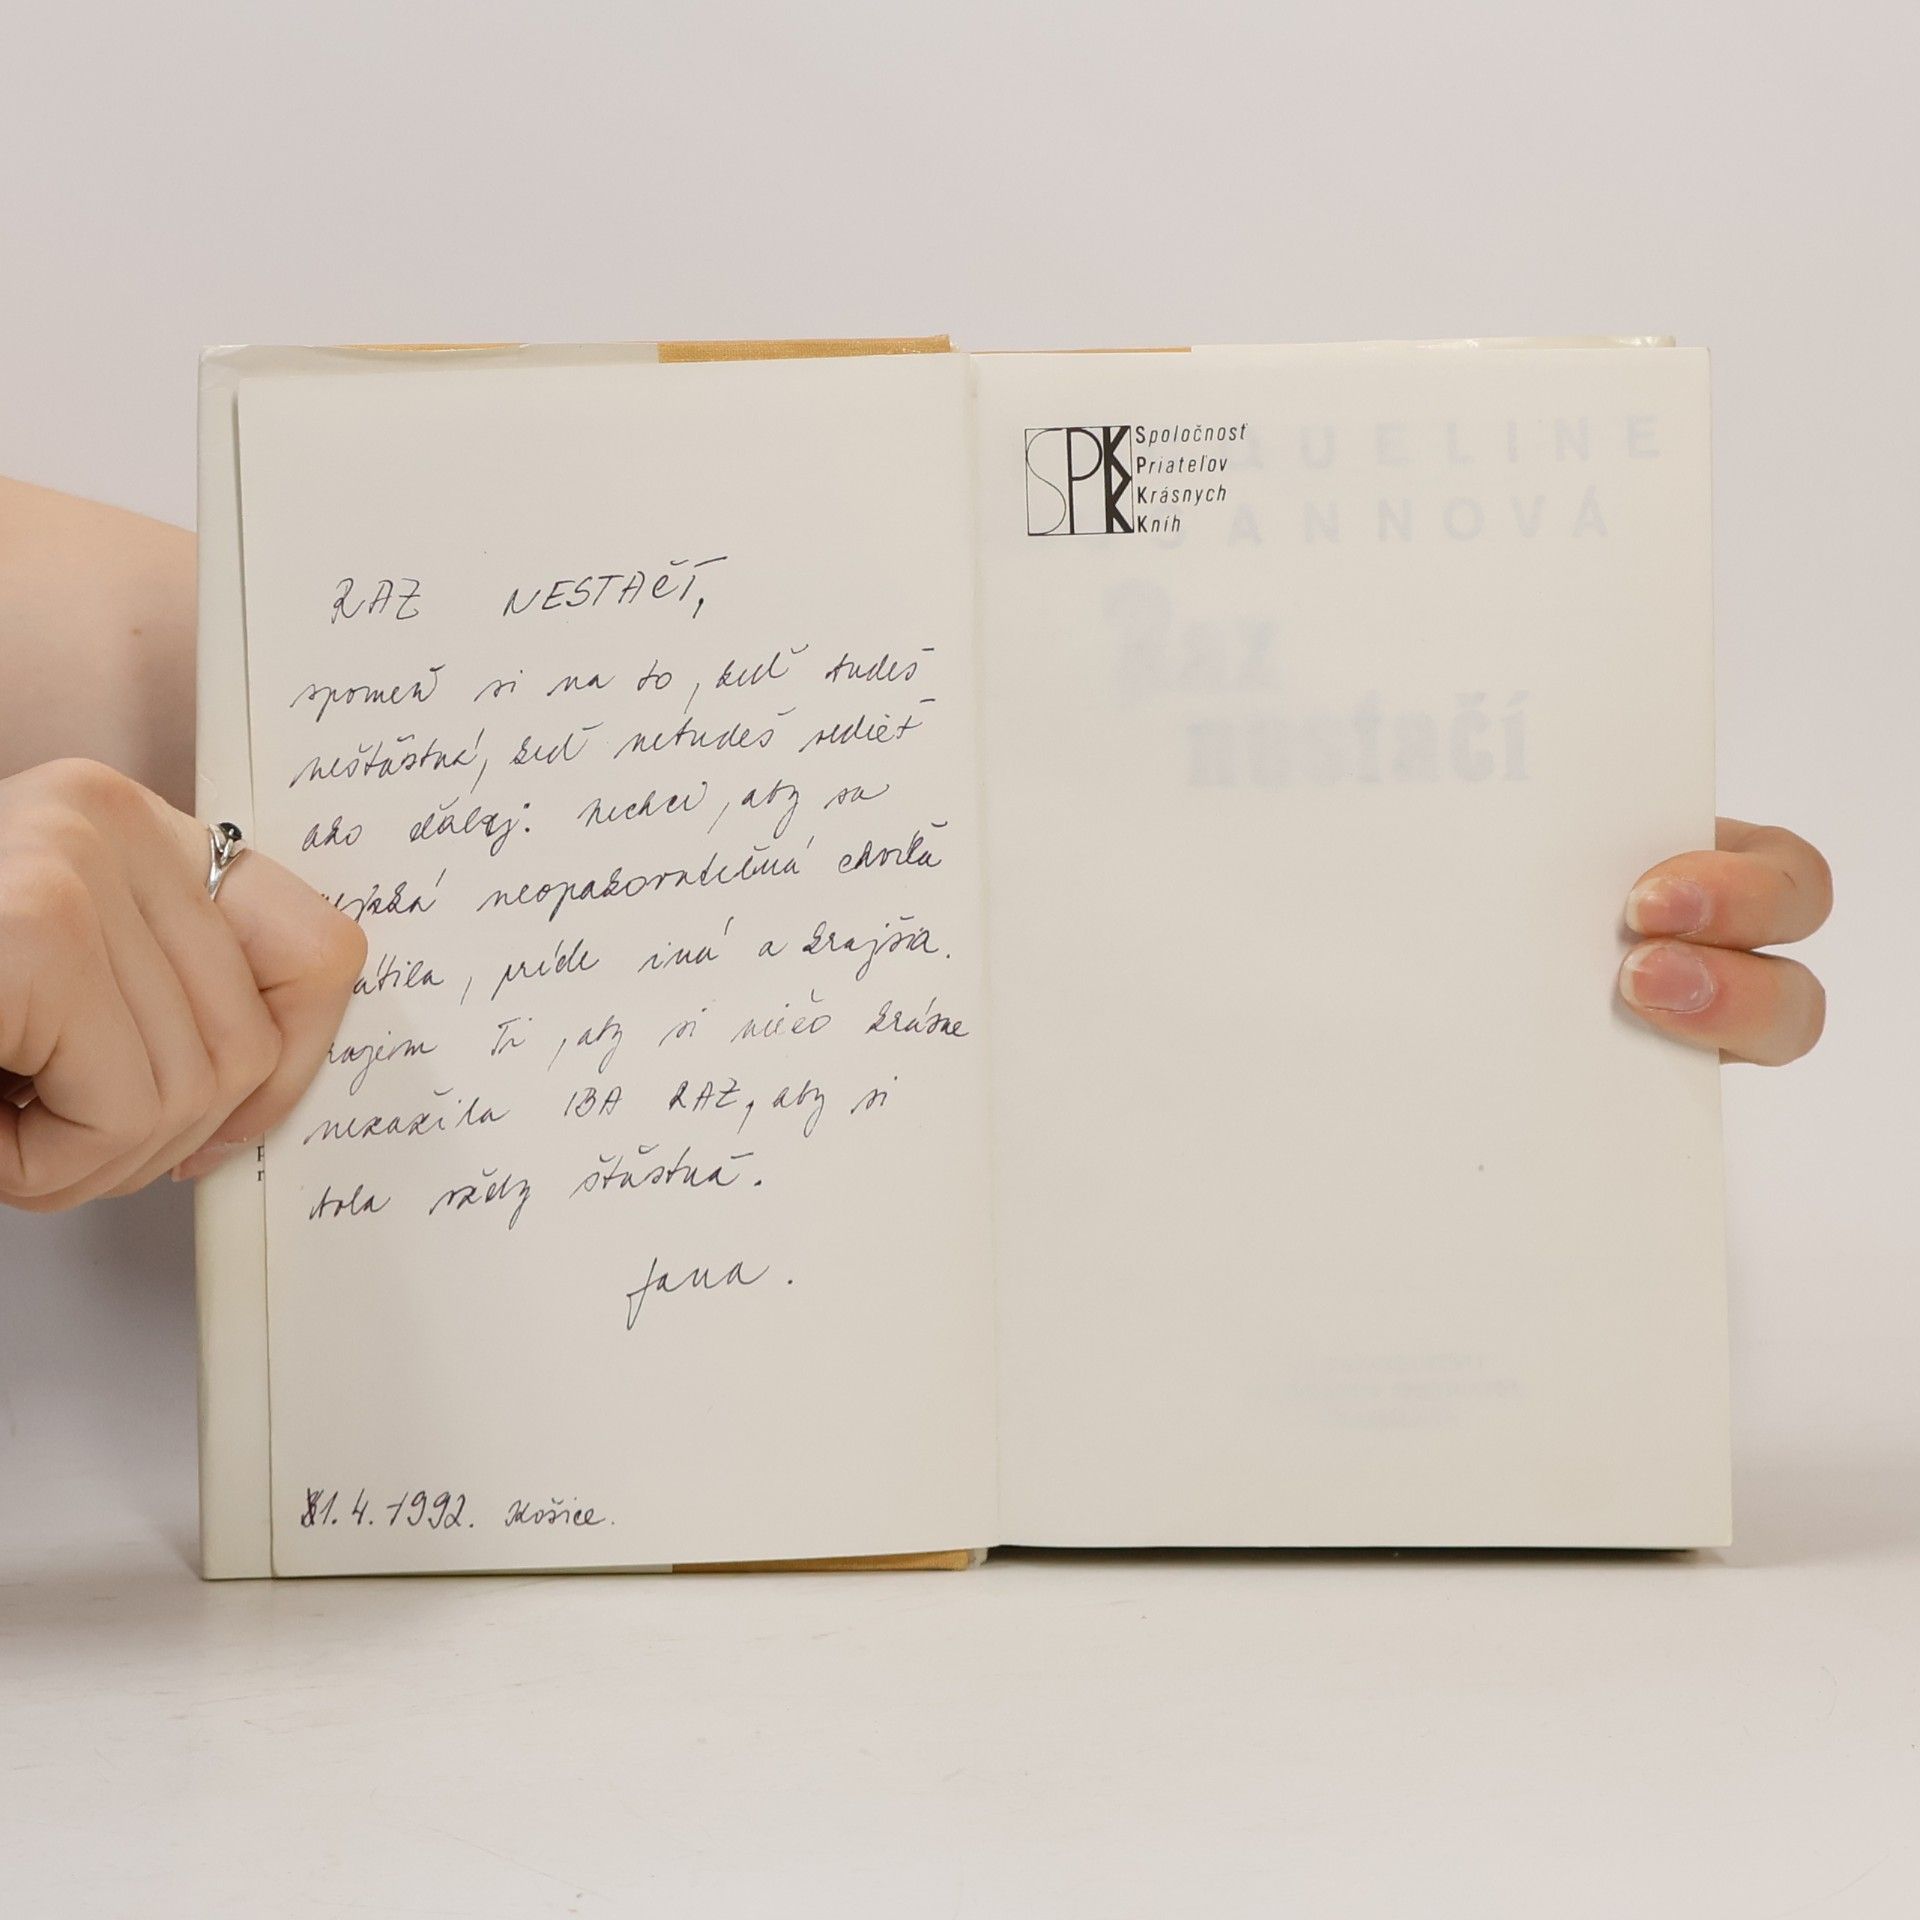 RAZ NESTAČÍ,
spomeň si na to, keď budeš
nešťastná, keď nebudeš vedieť
ako ďalej. Nechci, aby sa
neopakovateľná chvíľa
príde iná a krajšia.
Ti, aby si niečo krásne
nezažila IBA RAZ, aby si
bola vždy šťastná.
Jana.
1.4.1992. Košice.
SPKK
Spoločnosť
Priateľov
Krásnych
Kníh
Raz
nestačí